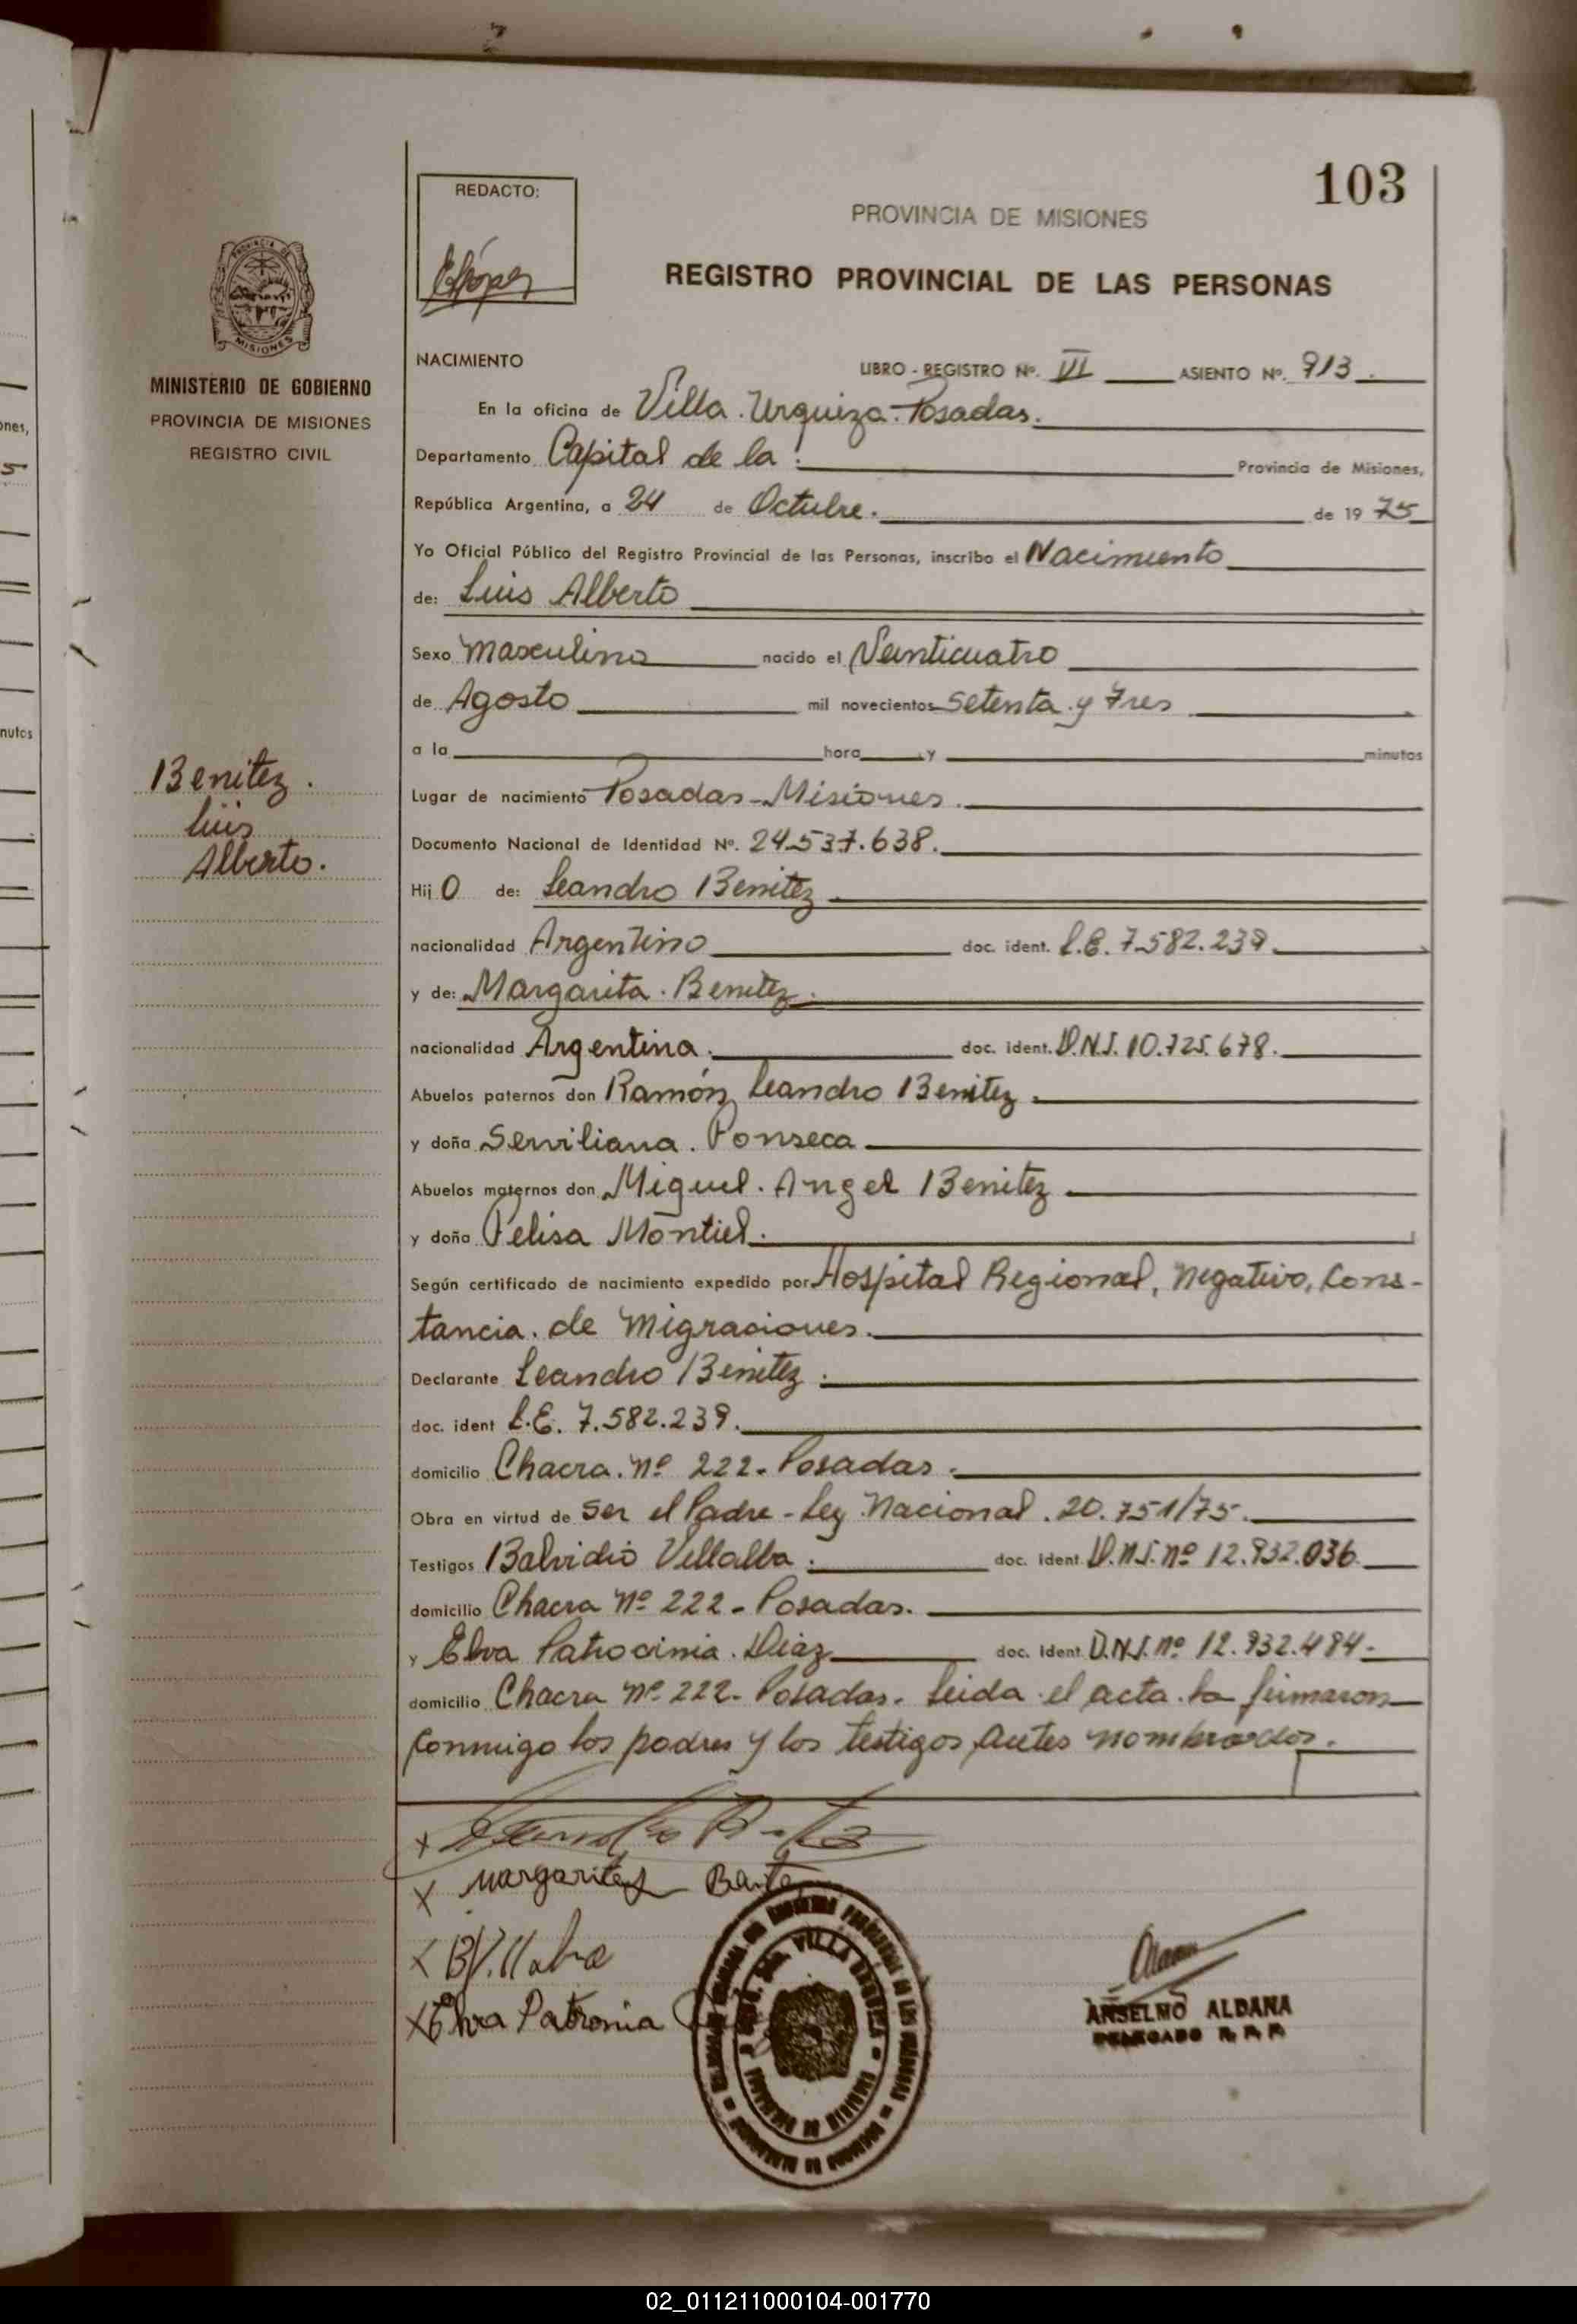 103
REDACTO:
PROVINCIA DE MISIONES
REGISTRO PROVINCIAL DE LAS PERSONAS
MINISTERIO DE GOBIERNO
PROVINCIA DE MISIONES
REGISTRO CIVIL
NACIMIENTO LIBRO - REGISTRO Nº. III ASIENTO Nº. 913.
En la oficina de Villa Urquiza - Posadas.
Departamento Capital de la Provincia de Misiones,
República Argentina, a 24 de Octubre. de 19 75
Yo Oficial Público del Registro Provincial de las Personas, inscribo el Nacimiento
de: Luis Alberto
Sexo masculino nacido el Veinticuatro
de Agosto mil novecientos setenta y tres
a la hora y minutos
Benitez.
Luis
Alberto.
Lugar de nacimiento Posadas - Misiones.
Documento Nacional de Identidad Nº. 24.537.638.
Hij o de: Leandro Benitez
nacionalidad Argentino doc. ident. L.E. 7.582.239.
y de: Margarita Benitez.
nacionalidad Argentina. doc. ident. D.N.I. 10.725.678.
Abuelos paternos don Ramón Leandro Benitez.
y doña Serviliana Fonseca
Abuelos maternos don Miguel Angel Benitez
y doña Felisa Montiel.
Según certificado de nacimiento expedido por Hospital Regional, negativo, Cons-
tancia de Migraciones.
Declarante Leandro Benitez.
doc. ident L.E. 7.582.239.
domicilio Chacra nº 222 - Posadas.
Obra en virtud de ser el Padre - Ley Nacional 20.751/75.
Testigos Balvidio Villalba. doc. ident. D.N.I. nº 12.932.036.
domicilio Chacra Nº 222 - Posadas.
y Elva Patrocinia Diaz doc. ident. D.N.I. nº 12.932.494.
domicilio Chacra nº 222 - Posadas. Leida el acta la firmaron
conmigo los padres y los testigos antes nombrados.
x
x Margarita
x B Villalba
x Elva Patronia
VILLA URQUIZA
ANSELMO ALDANA
DELEGADO R. P. P.
02_011211000104-001770